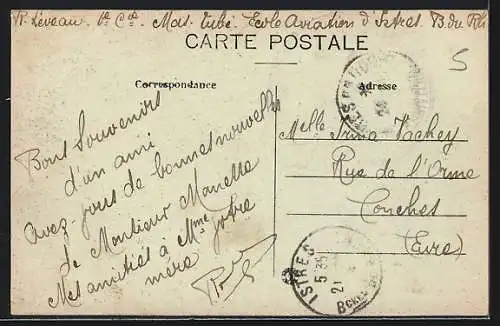 R. Leveau. 1e Cie Mas. Tubé. Ecole Aviation d'Istres B. du Rh
CARTE POSTALE
Correspondance
Adresse
5
Bons Souvenirs
d'un ami
Avez-vous de bonnes nouvelles
de Monsieur
Mes amitiés à Mme votre
mère
Melle Irma Vachey
Rue de l'Orme
Conches
(Eure)
ISTRES
5 35
21